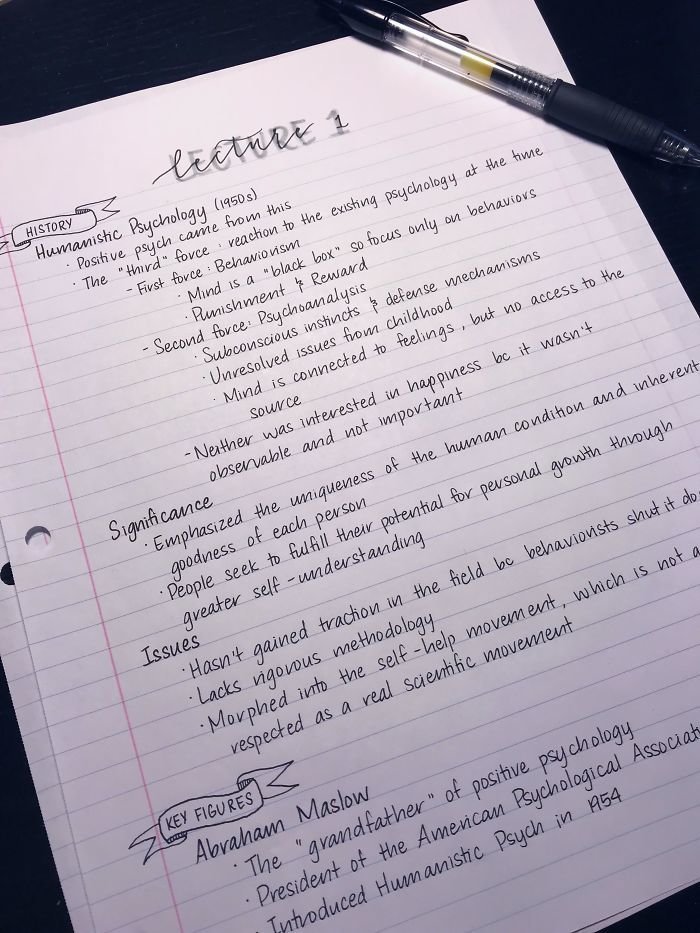 lecture 1
LECTURE 1
HISTORY
Humanistic Psychology (1950s)
· Positive psych came from this
· The "third" force : reaction to the existing psychology at the time
- First force : Behaviorism
· Mind is a "black box" so focus only on behaviors
· Punishment & Reward
- Second force: Psychoanalysis
· Subconscious instincts & defense mechanisms
· Unresolved issues from childhood
· Mind is connected to feelings, but no access to the
source
- Neither was interested in happiness bc it wasn't
observable and not important
Significance
· Emphasized the uniqueness of the human condition and inherent
goodness of each person
· People seek to fulfill their potential for personal growth through
greater self-understanding
Issues
· Hasn't gained traction in the field bc behaviorists shut it do
· Lacks rigorous methodology
· Morphed into the self-help movement, which is not a
respected as a real scientific movement
KEY FIGURES
Abraham Maslow
· The "grandfather" of positive psychology
· President of the American Psychological Associat
· Introduced Humanistic Psych in 1954